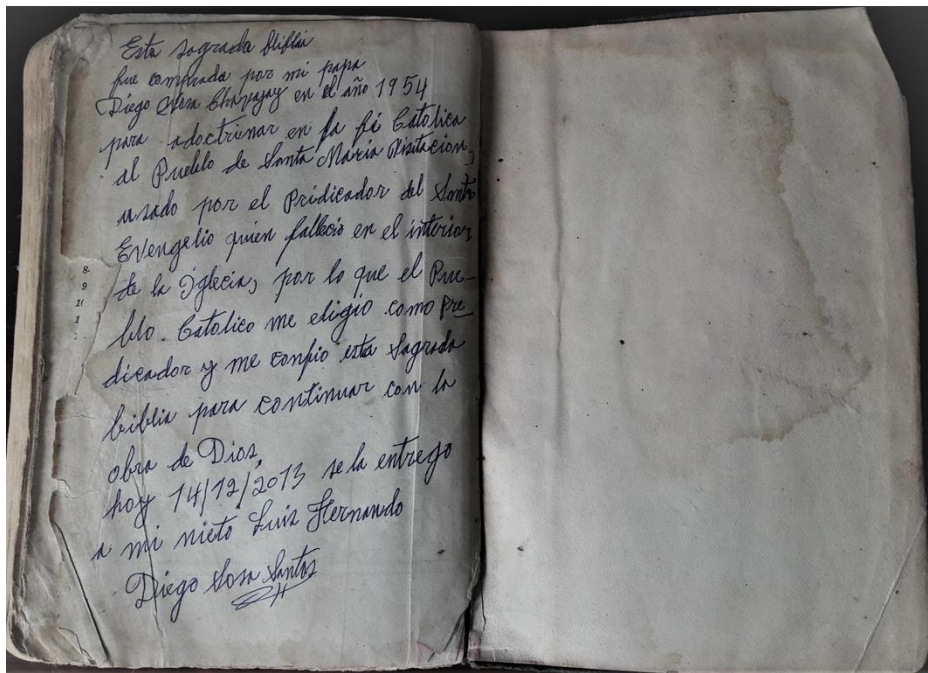 Esta sagrada Biblia
fue comprada por mi papa
Diego Sosa Chavajay en el año 1954
para adoctrinar en la fé Catolica
al Pueblo de Santa Maria Visitacion,
usado por el Pridicador del Santo
Evengelio quien fallecio en el interior
de la Iglecia, por lo que el Pue-
blo. Catolico me eligio como Pre-
dicador y me confio esta Sagrada
biblia para continuar con la
obra de Dios,
hoy 14/12/2013 se la entrego
a mi nieto Luis Hernando
Diego Sosa Santos
8-
9